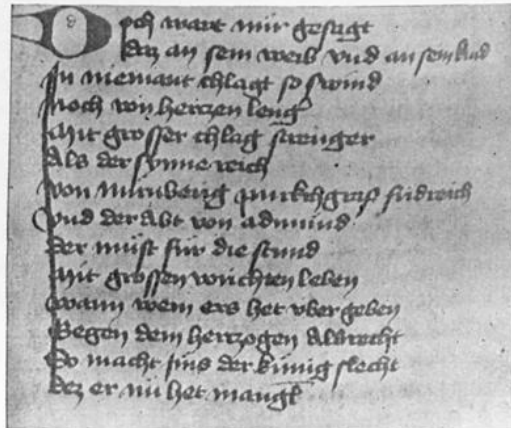 och wart mir gesagt
daz an sein weib vnd an sein kind
In niemant chlagt so swind
noch von hertzen leng
Mit grosser chlag strenger
Als der synne reich
von Nurnberig purkchgraf fridreich
vnd der Abt von admund
der must fur die stund
Mit grossen vorichten leben
wann wem ers het vbergeben
Gegen dem hertzogen Albrecht
So macht sins der kunig slecht
dez er nu het mangk